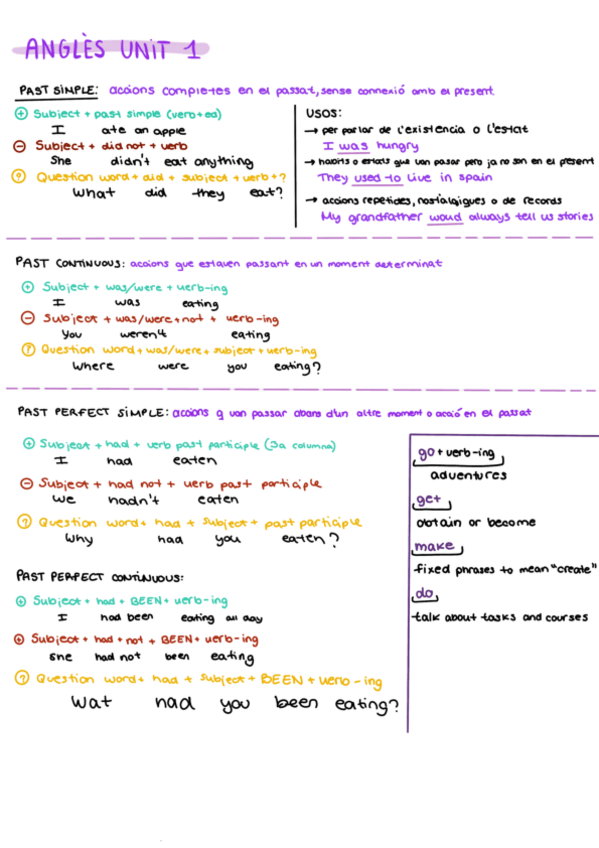 ANGLÈS UNIT 1
PAST SIMPLE: accions completes en el passat, sense connexió amb el present
+ Subject + past simple (verb+ed)
I ate an apple
- Subject + did not + verb
She didn't eat anything
? Question word + did + subject + verb + ?
What did they eat?
USOS:
→ per parlar de l'existencia o l'estat
I was hungry
→ habits o estats que van passar pero ja no son en el present
They used to live in spain
→ accions repetides, nostalgiques o de records
My grandfather woud always tell us stories
PAST CONTINUOUS: accions que estaven passant en un moment determinat
+ Subject + was/were + verb-ing
I was eating
- Subject + was/were + not + verb-ing
You weren't eating
? Question word + was/were + subject + verb-ing
Where were you eating?
PAST PERFECT SIMPLE: accions q van passar abans d'un altre moment o acció en el passat
+ Subject + had + verb past participle (3a columna)
I had eaten
- Subject + had not + verb past participle
We hadn't eaten
? Question word + had + subject + past participle
Why had you eaten?
PAST PERFECT CONTINUOUS:
+ Subject + had + BEEN + verb-ing
I had been eating all day
+ Subject + had + not + BEEN + verb-ing
She had not been eating
? Question word + had + subject + BEEN + verb-ing
Wat had you been eating?
go + verb-ing
adventures
get
obtain or become
make
fixed phrases to mean "create"
do
talk about tasks and courses